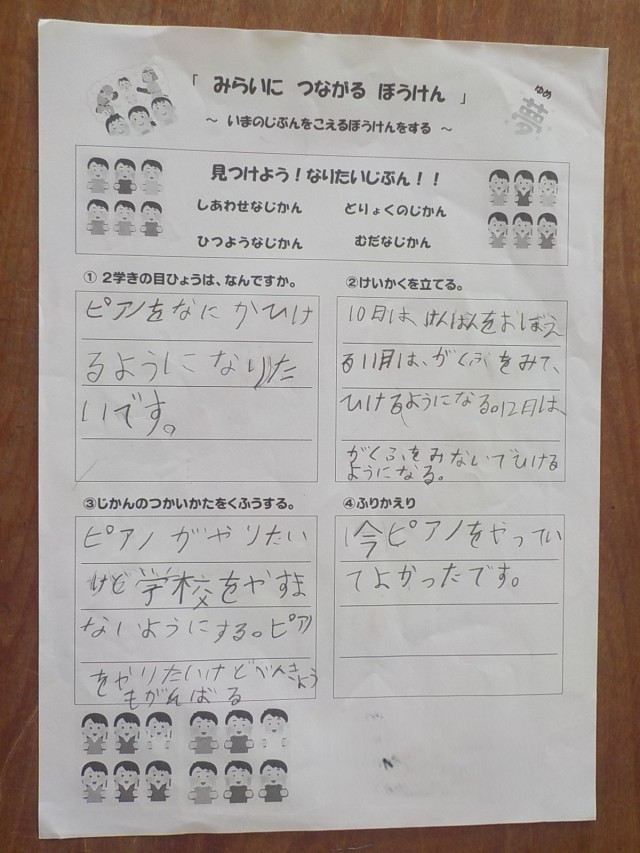 「 みらいに つながる ぼうけん 」
ゆめ
夢
～ いまのじぶんをこえるぼうけんをする ～
見つけよう！なりたいじぶん！！
しあわせなじかん どりょくのじかん
ひつようなじかん むだなじかん
① 2学きの目ひょうは、なんですか。
ピアノをなにかひけ
るようになりた
いです。
②けいかくを立てる。
10月は、けんばんをおぼえ
る11月は、がくふをみて、
ひけるようになる。12月は、
がくふをみないでひける
ようになる。
③じかんのつかいかたをくふうする。
ピアノがやりたい
けど学校をやすま
ないようにする。ピアノ
をやりたいけどべんきょう
もがんばる
④ふりかえり
今ピアノをやってい
てよかったです。